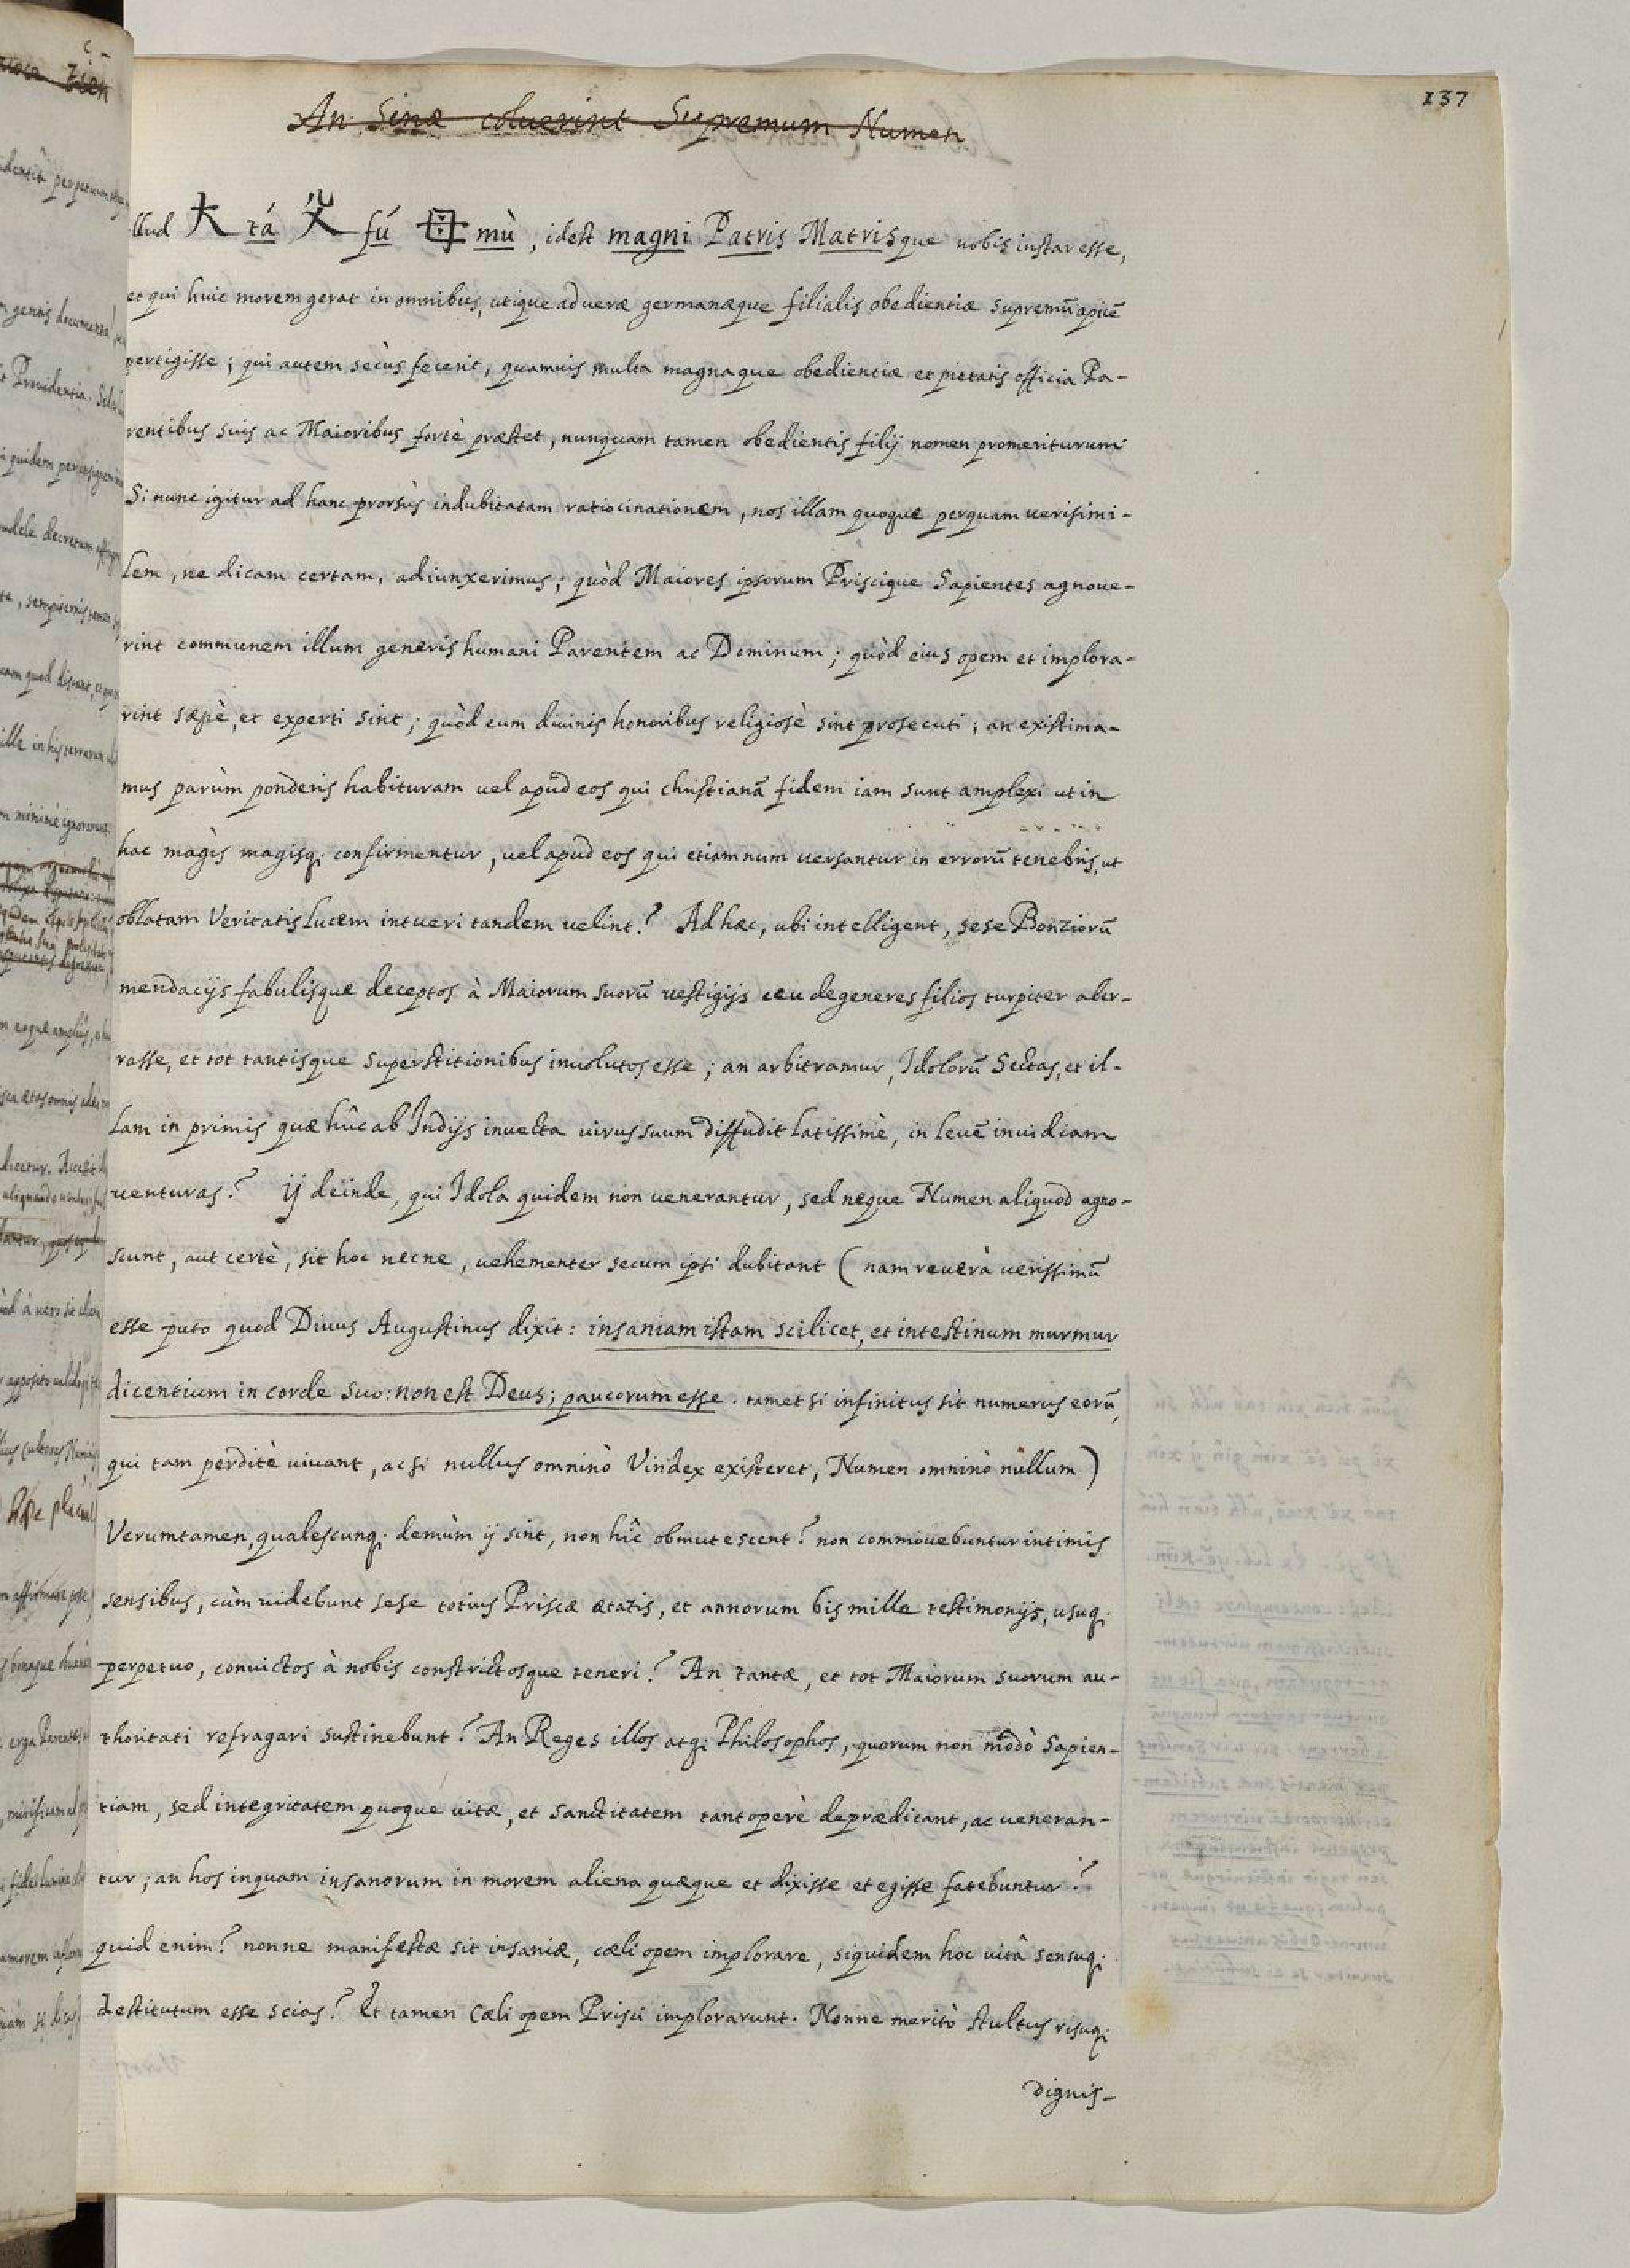 137
An Sinæ coluerint Supremum Numen
illud 大 tá 父 fú 母 mù, idest magni Patris Matrisque nobis instar esse,
et qui huic morem gerat in omnibus, utique ad veræ germanæque filialis obedientiæ supremū apicē
pertigisse; qui autem secùs fecerit, quamuis multa magnaque obedientiæ et pietatis officia Pa-
rentibus suis ac Maioribus fortè præstet, nunquam tamen obedientis filij nomen promeriturum
Si nunc igitur ad hanc prorsùs indubitatam ratiocinationem, nos illam quoque perquam uerisimi-
lem, ne dicam certam, adiunxerimus; quòd Maiores ipsorum Priscique Sapientes agnoue-
rint communem illum generis humani Parentem ac Dominum; quòd eius opem et implora-
rint sæpè, et experti sint; quòd eum diuinis honoribus religiosè sint prosecuti; an existima-
mus parùm ponderis habituram uel apud eos qui christianā fidem iam sunt amplexi ut in
hac magis magisq; confirmentur, uel apud eos qui etiamnum uersantur in errorū tenebris, ut
oblatam Veritatis Lucem intueri tandem uelint? Ad hæc, ubi intelligent, sese Bonziorū
mendacijs fabulisque deceptos à Maiorum suorū uestigijs ceu degeneres filios turpiter aber-
rasse, et tot tantisque superstitionibus inuolutos esse; an arbitramur, Idolorū Sectas, et il-
lam in primis quæ hûc ab Indijs inuecta uirus suum diffudit latissimè, in leuē inuidiam
uenturas? ij deinde, qui Idola quidem non uenerantur, sed neque Numen aliquod agno-
scunt, aut certè, sit hoc necne, uehementer secum ipsi dubitant (nam reuerà uerissimū
esse puto quod Diuus Augustinus dixit: insaniam istam scilicet, et intestinum murmur
dicentium in corde suo: non est Deus; paucorum esse. tametsi infinitus sit numerus eorū,
qui tam perditè uiuant, ac si nullus omninò Vindex existeret, Numen omninò nullum)
Verumtamen, qualescunq; demùm ij sint, non hîc obmutescent? non commouebuntur intimis
sensibus, cùm uidebunt sese totius Priscæ ætatis, et annorum bis mille testimonijs, usuq;
perpetuo, conuictos à nobis constrictosque teneri? An tantæ, et tot Maiorum suorum au-
thoritati refragari sustinebunt? An Reges illos atq; Philosophos, quorum non modò sapien-
tiam, sed integritatem quoque uitæ, et sanctitatem tantoperè deprædicant, ac ueneran-
tur; an hos inquam insanorum in morem aliena quæque et dixisse et egisse fatebuntur?
quid enim? nonne manifestæ sit insaniæ, cæli opem implorare, siquidem hoc uitâ sensuq;
destitutum esse scias? Et tamen Cæli opem Prisci implorarunt. Nonne meritò stultus risuq;
dignis-